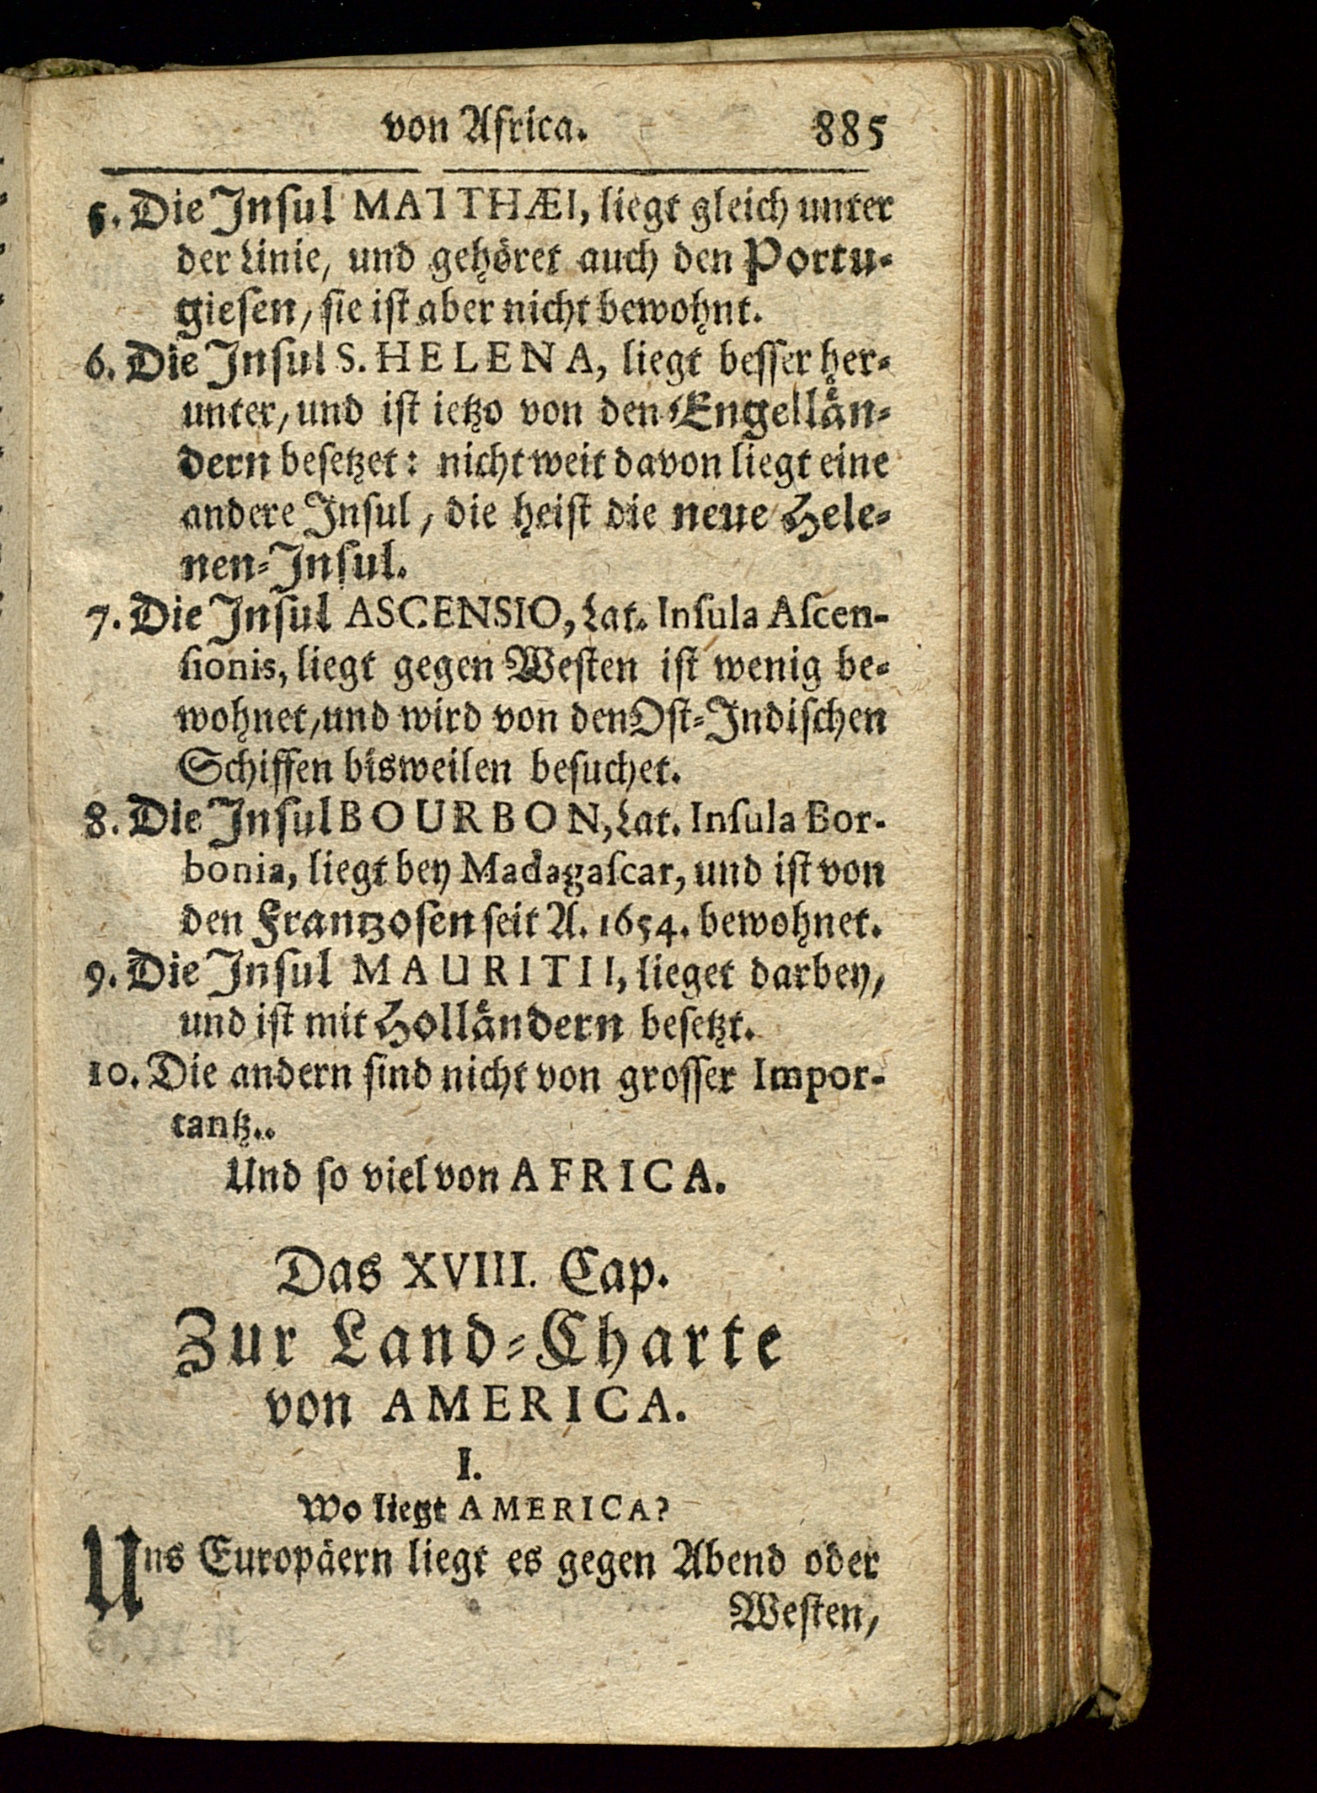 von Africa. 885
5. Die Jnſul MATTHÆI, liegt gleich unter
der Linie, und gehöret auch den Portu-
gieſen, ſie iſt aber nicht bewohnt.
6. Die Jnſul S. HELENA, liegt beſſer her-
unter, und iſt ietzo von den Engellän-
dern beſetzet: nicht weit davon liegt eine
andere Jnſul, die heiſt die neue Hele-
nen-Jnſul.
7. Die Jnſul ASCENSIO, Lat. Inſula Aſcen-
ſionis, liegt gegen Weſten iſt wenig be-
wohnet, und wird von den Oſt-Jndiſchen
Schiffen bisweilen beſuchet.
8. Die Jnſul BOURBON, Lat. Inſula Bor-
bonia, liegt bey Madagaſcar, und iſt von
den Frantzoſen ſeit A. 1654. bewohnet.
9. Die Jnſul MAURITII, lieget darbey,
und iſt mit Holländern beſetzt.
10. Die andern ſind nicht von groſſer Impor-
tantz..
Und ſo viel von AFRICA.
Das XVIII. Cap.
Zur Land-Charte
von AMERICA.
I.
Wo liegt AMERICA?
Uns Europäern liegt es gegen Abend oder
Weſten,